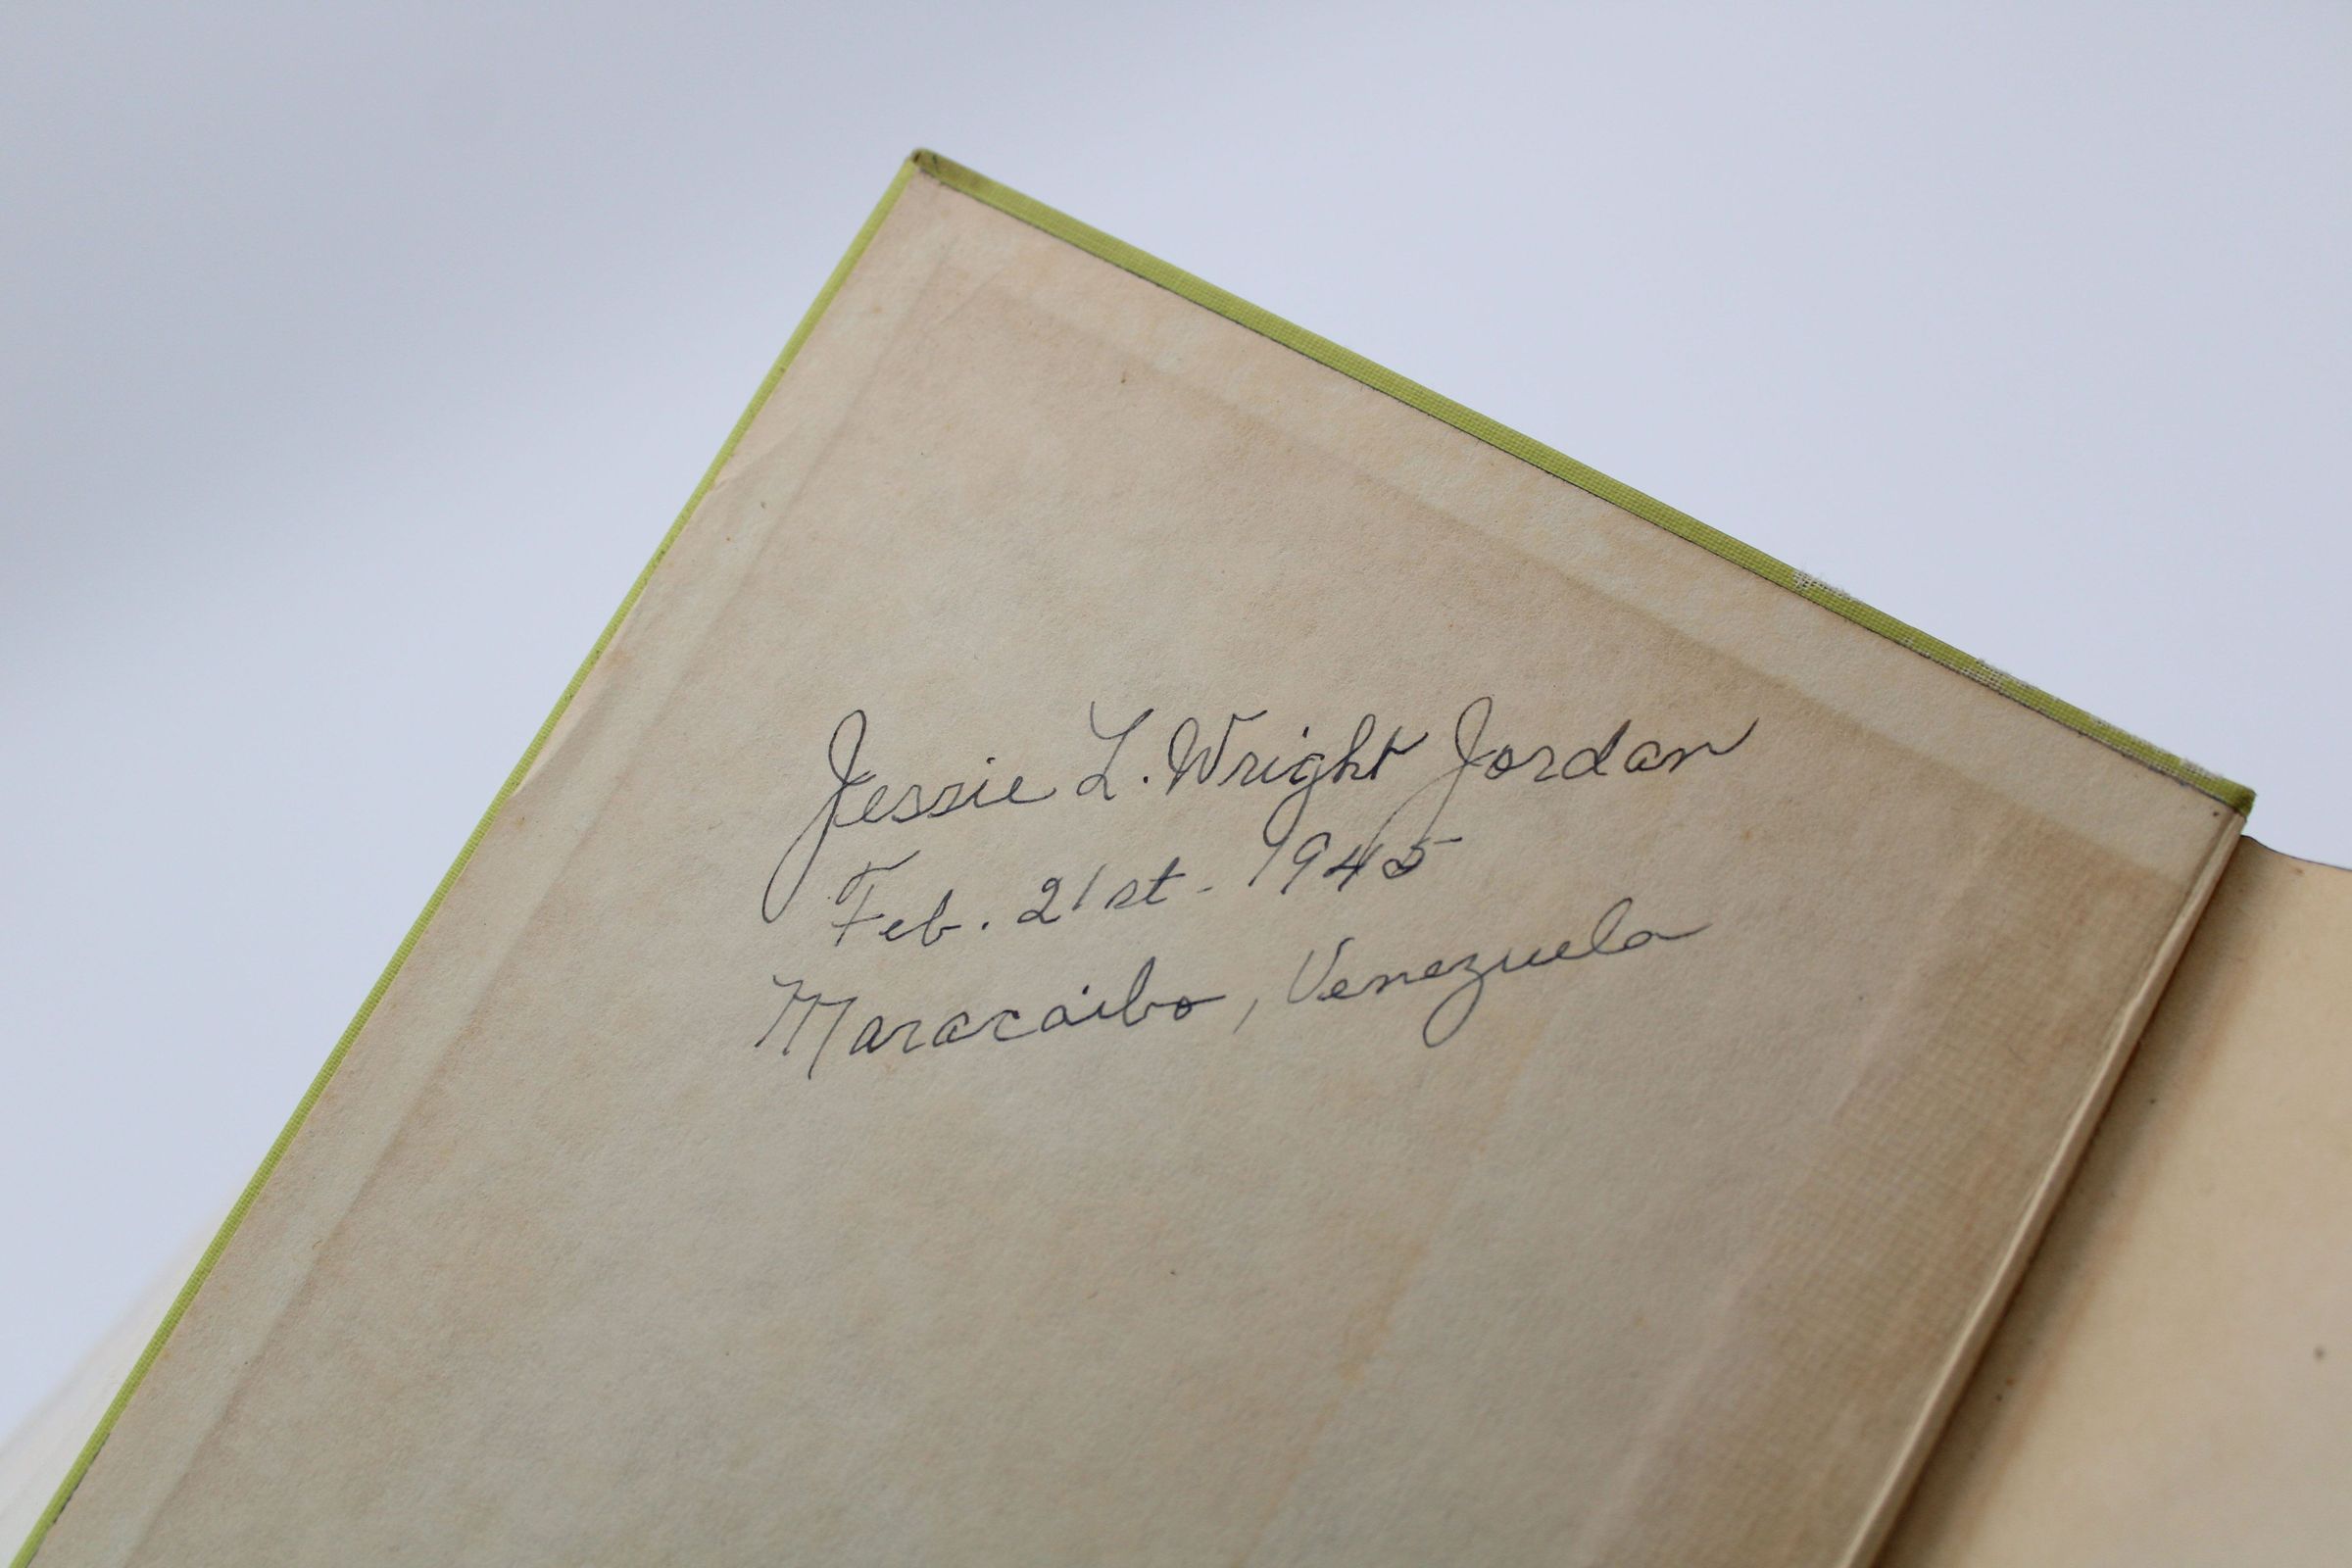 Jessie L. Wright Jordan
Feb. 21st - 1945
Maracaibo, Venezuela